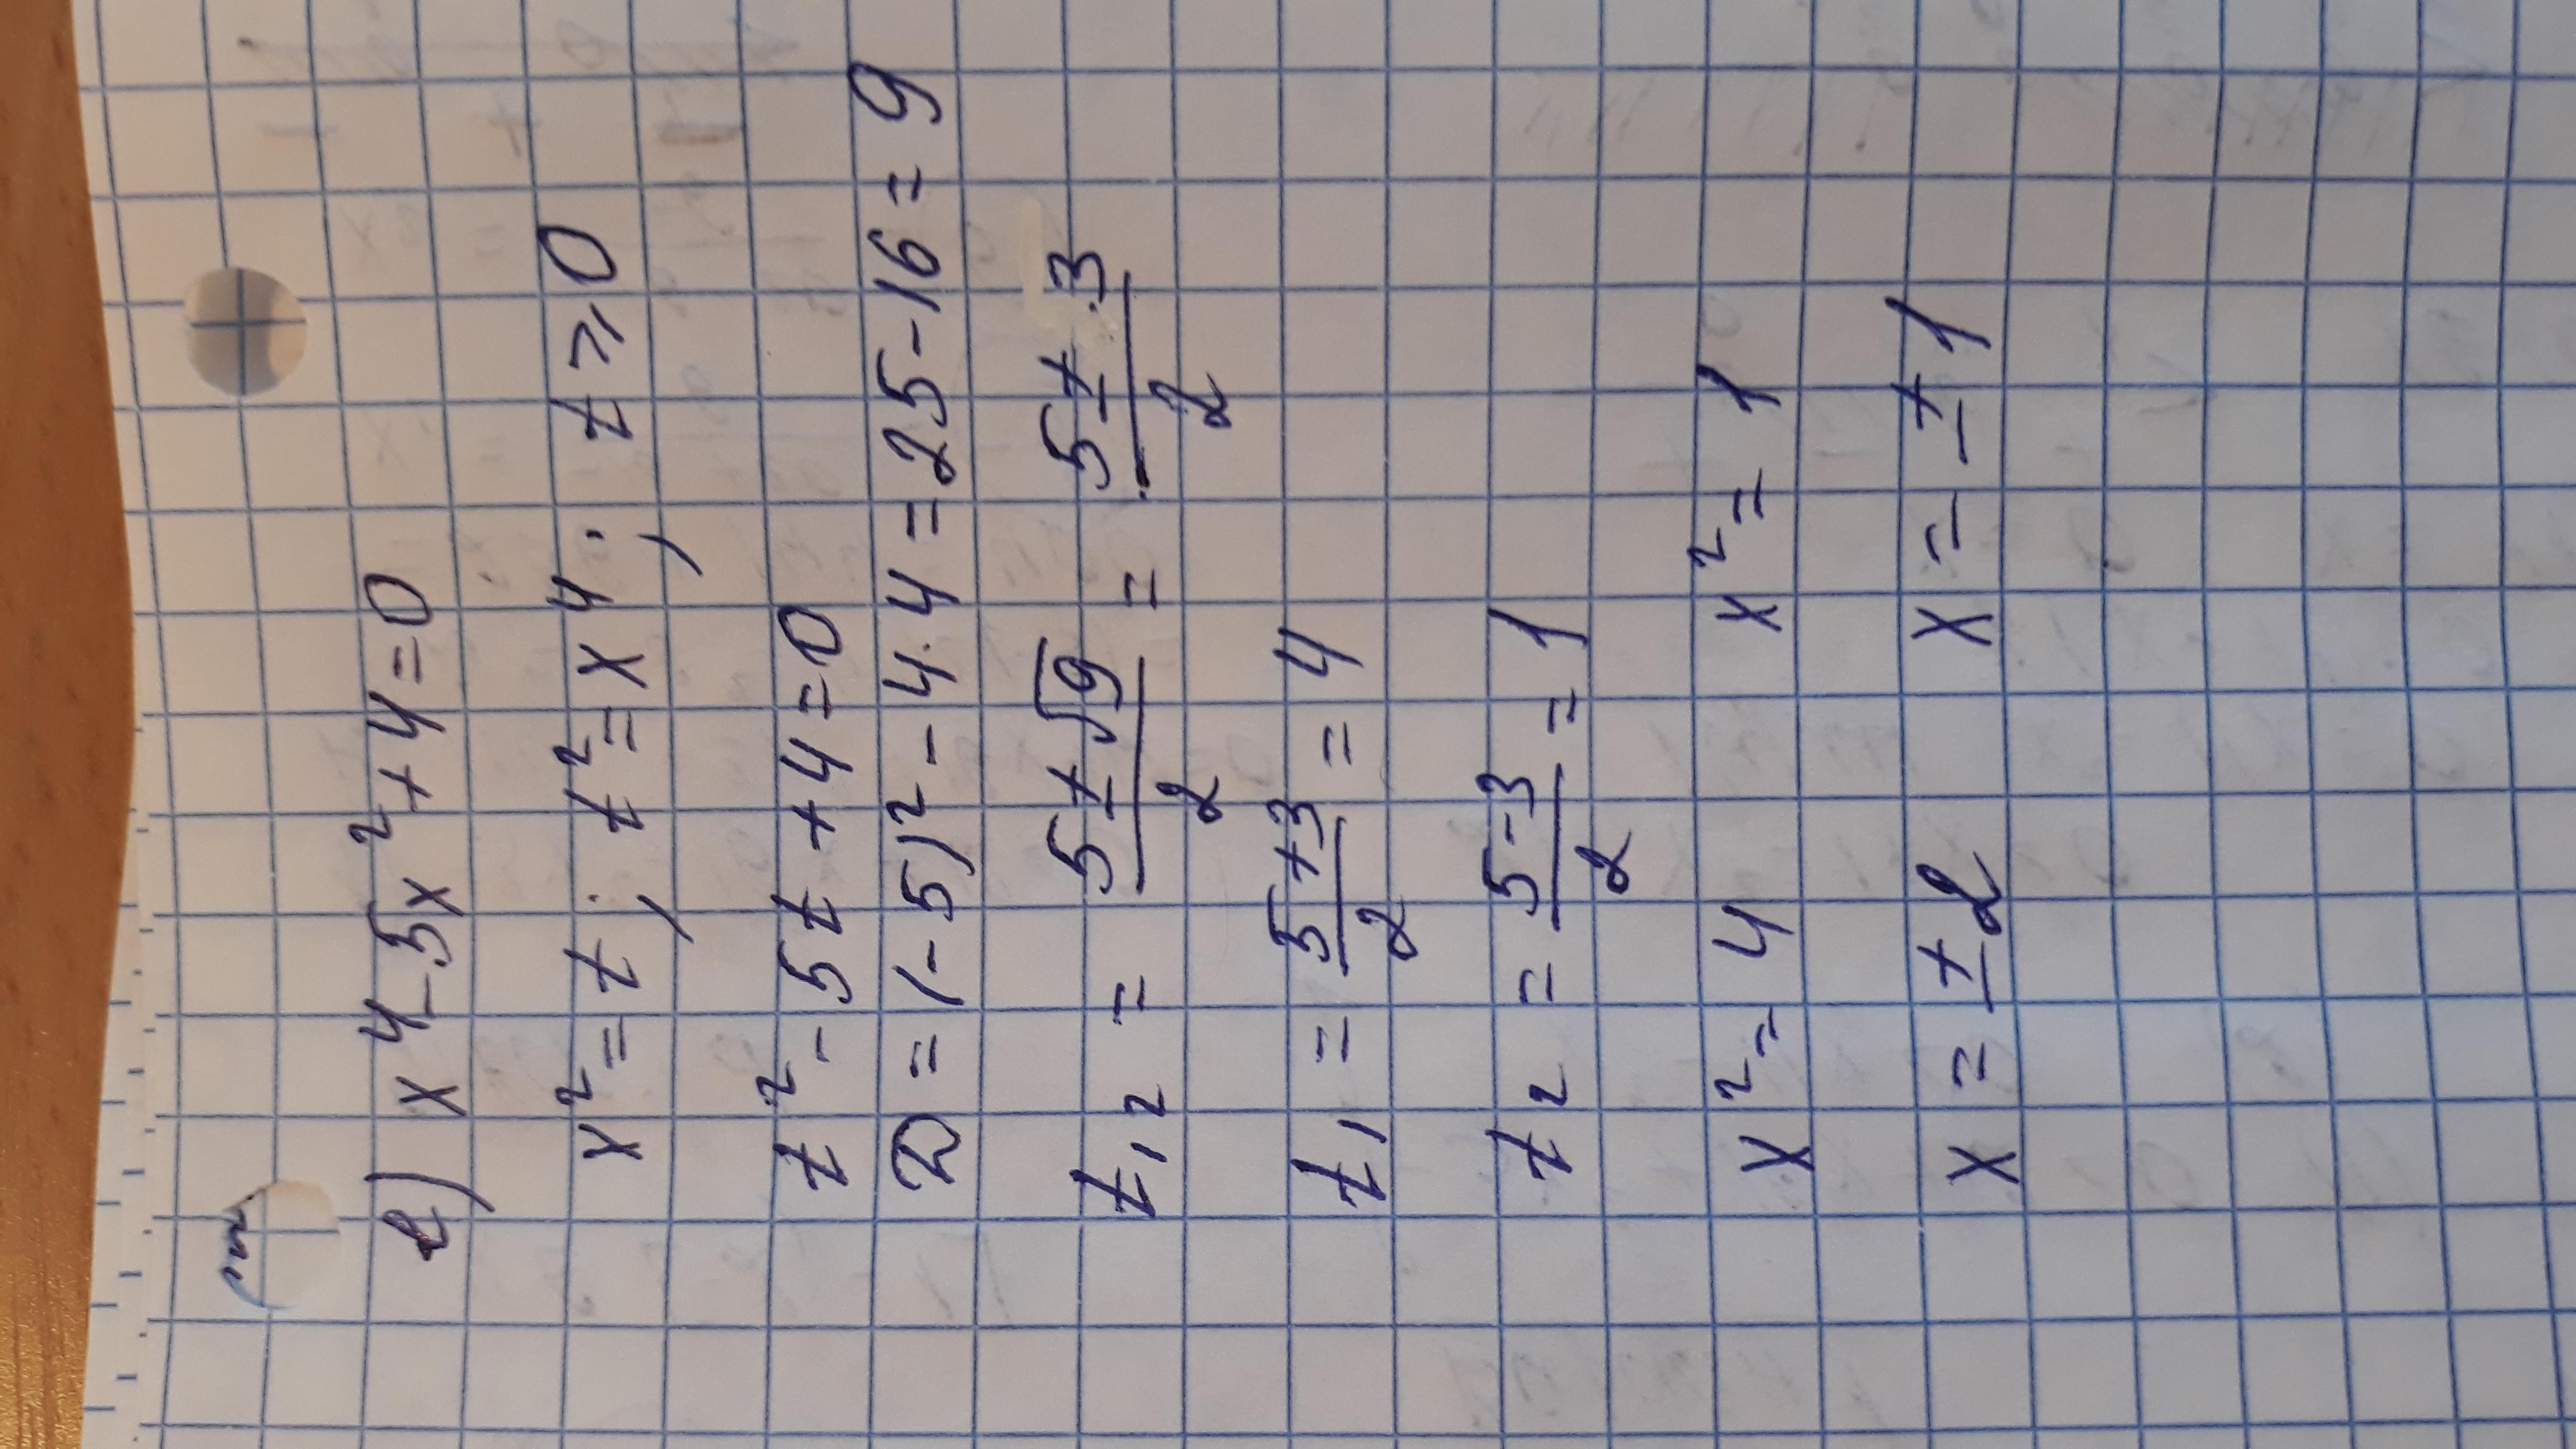 е) x⁴-5x²+4=0
x²=t; t²=x⁴; t⩾0
t²-5t+4=0
D=(-5)²-4·4=25-16=9
t₁,₂ = (5±√9)/2 = (5±3)/2
t₁ = (5+3)/2 = 4
t₂ = (5-3)/2 = 1
x²=4 x²=1
x=±2 x=±1